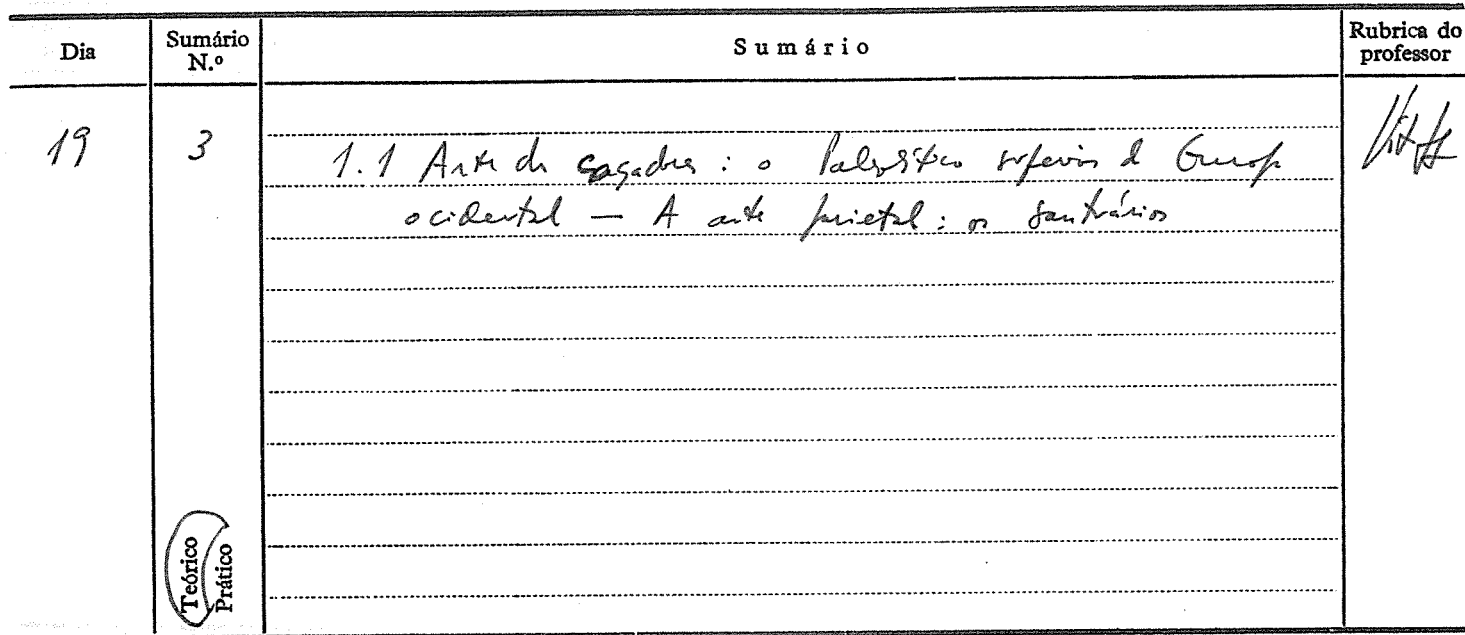 Dia
Sumário N.º
Sumário
Rubrica do professor
19
3
1.1 Arte de caçadores : o Paleolítico superior da Europa
ocidental — A arte parietal : os santuários
Teórico
Prático